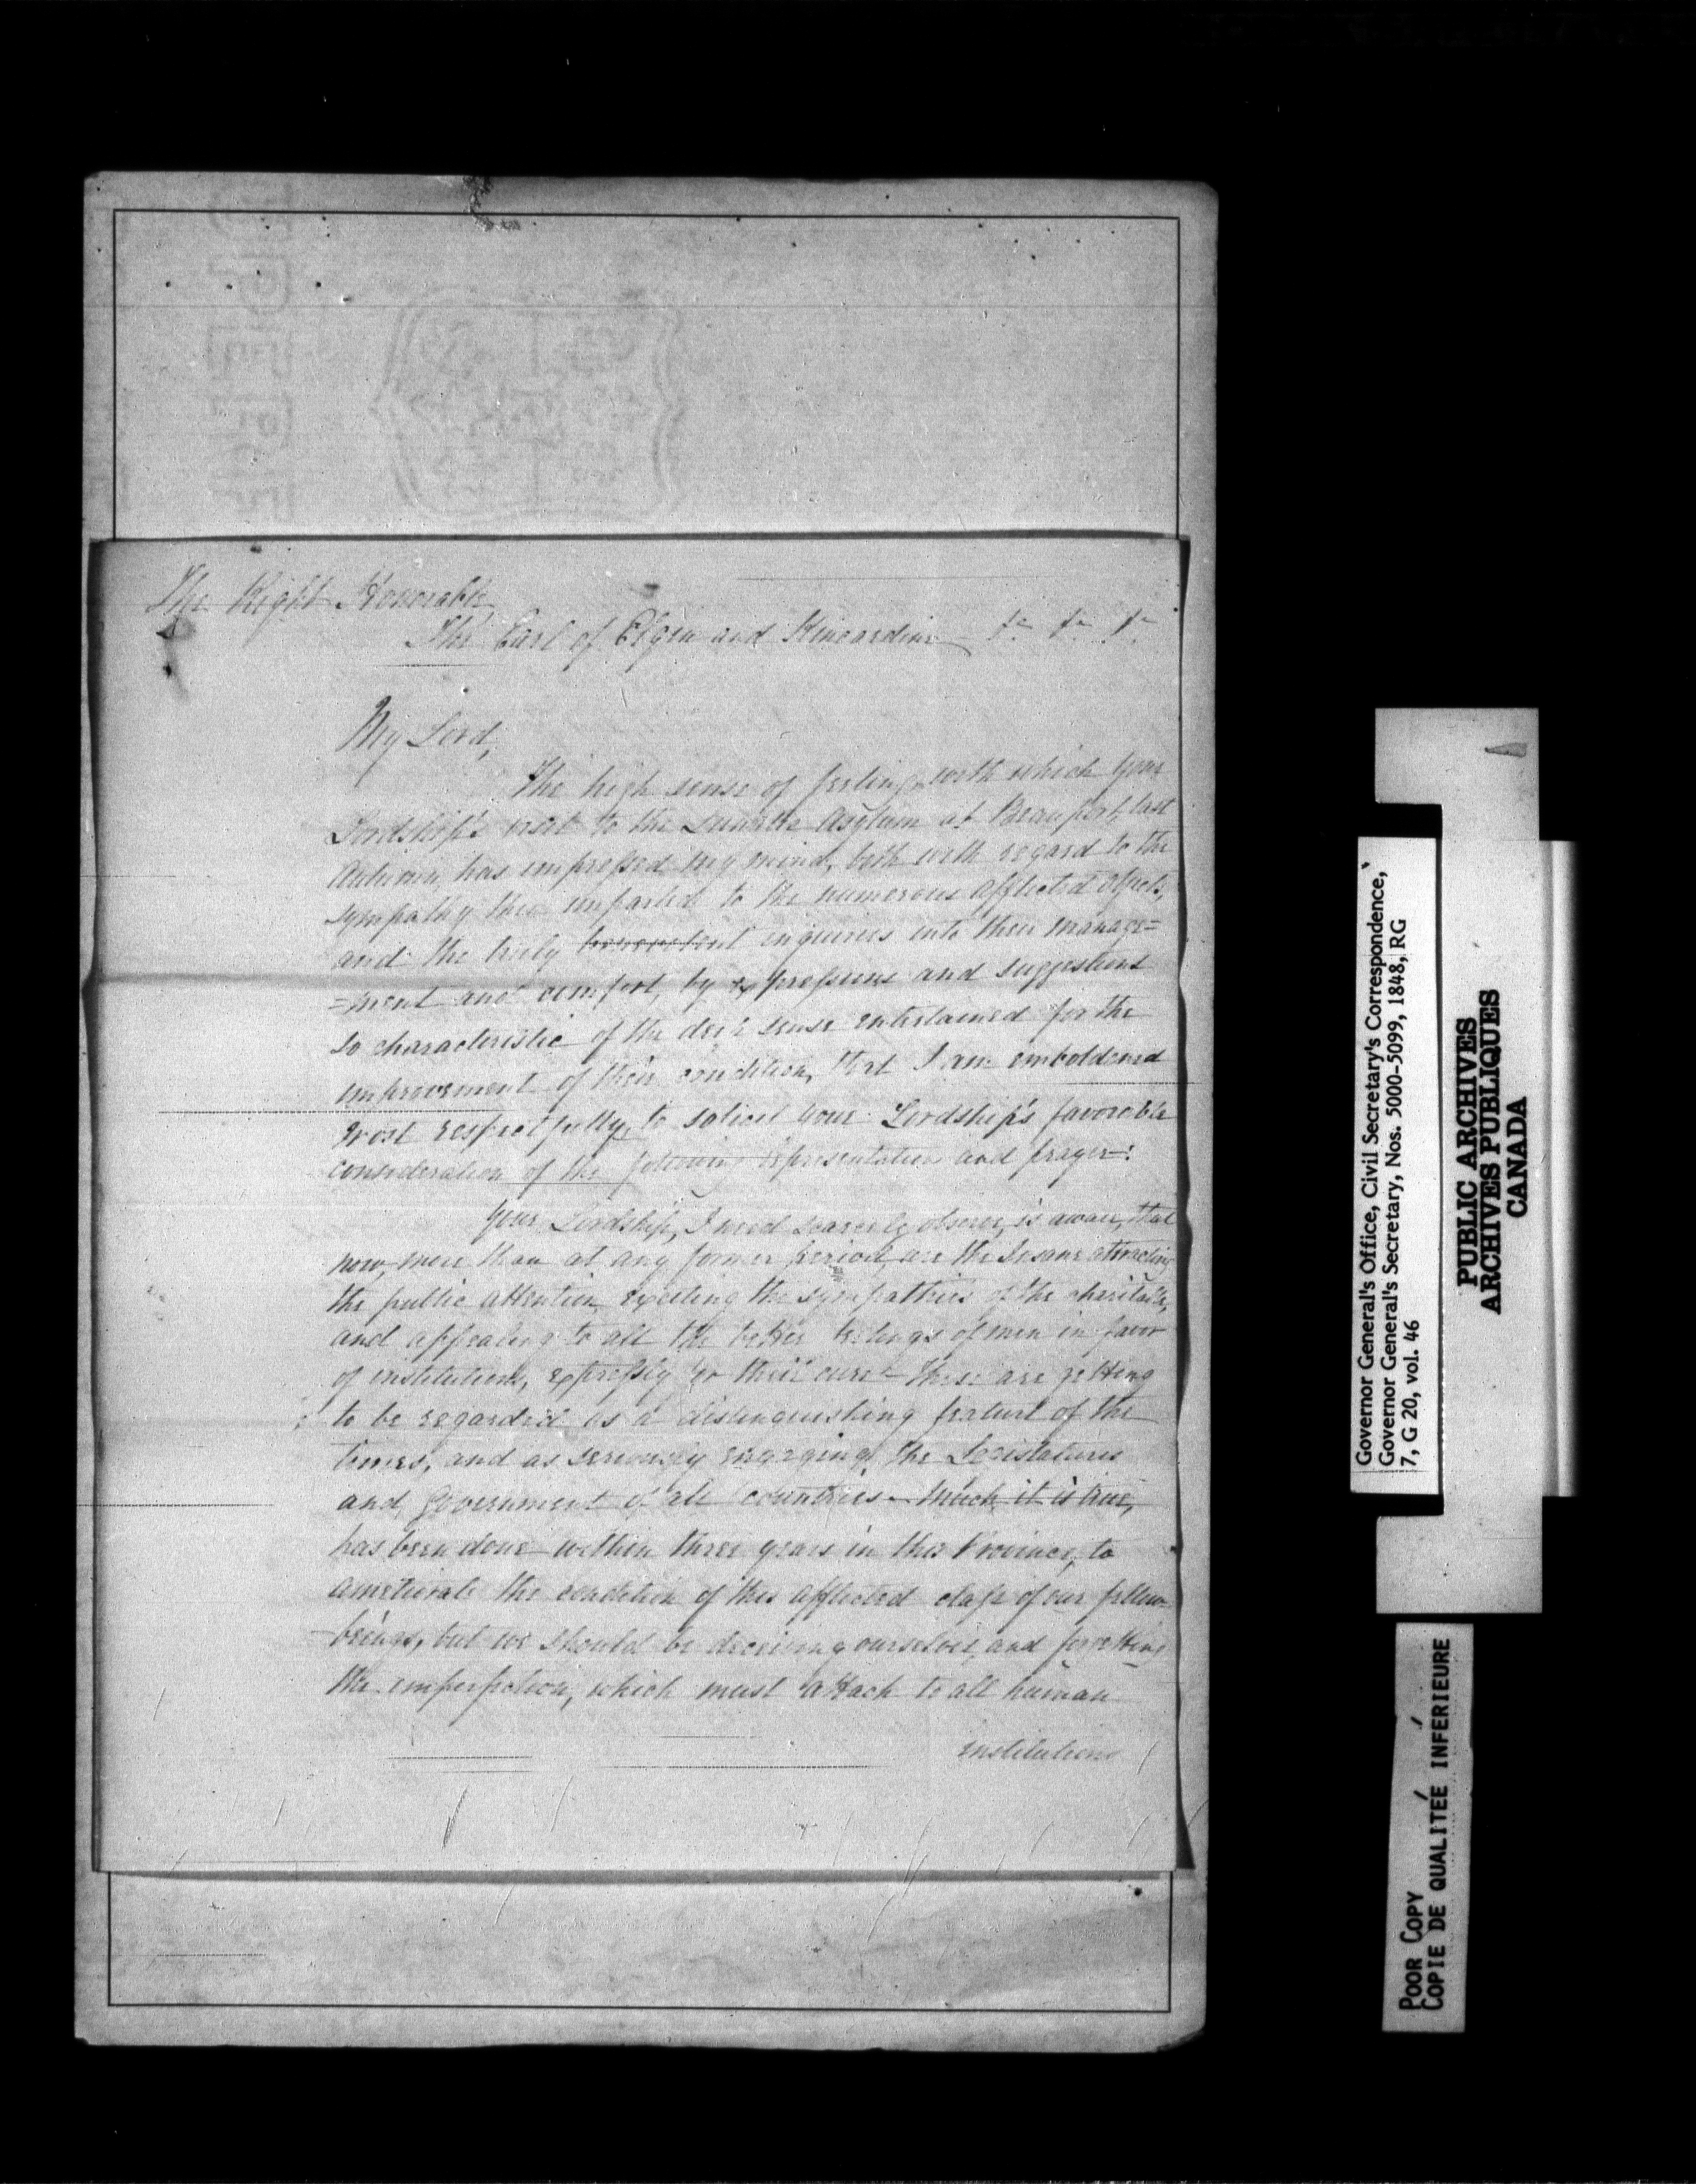 The Right Honorable
The Earl of Elgin and Kincardine &c &c &c
My Lord,
The high sense of feeling with which Your
Lordship's visit to the Lunatic Asylum at Beauport, last
Autumn, has impressed my mind, both with regard to the
sympathy then imparted to the numerous afflicted objects,
and the truly benevolent enquiries into their manage=
=ment and comfort, by expressions and suggestions
so characteristic of the deep sense entertained for the
improvement of their condition, that I am emboldened
most respectfully, to solicit your Lordship's favorable
consideration of the following representation and prayer:
Your Lordship, I need scarcely observe, is aware, that
now, more than at any former period, are the Insane attracting
the public attention, exciting the sympathies of the charitable,
and appealing to all the better feelings of men in favor
of institutions, expressly for their cure - these are getting
to be regarded as a distinguishing feature of the
times, and as seriously engaging the Legislatures
and Government of all countries - Much, it is true,
has been done within three years in this Province, to
ameliorate the condition of this afflicted class of our fellow-
-beings, but we should be deceiving ourselves, and forgetting
the imperfection, which must attach to all human
institutions
Governor General's Office, Civil Secretary's Correspondence,
Governor General's Secretary, Nos. 5000-5099, 1848, RG
7, G 20, vol. 46
PUBLIC ARCHIVES
ARCHIVES PUBLIQUES
CANADA
POOR COPY
COPIE DE QUALITEÉ INFERIEURE